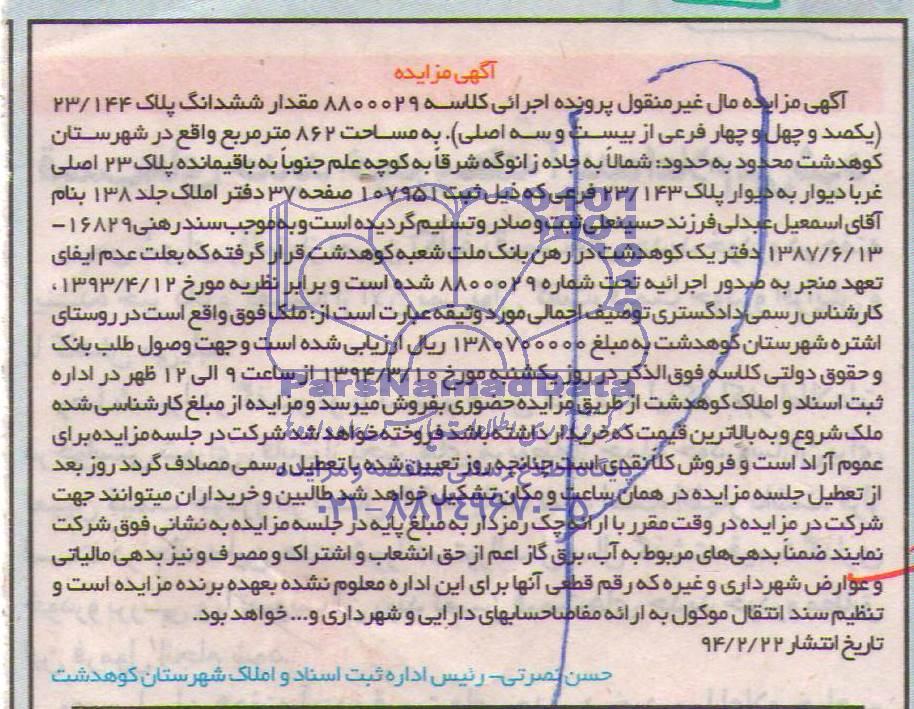 آگهی مزایده
آگهی مزایده مال غیرمنقول پرونده اجرائی کلاسه ۸۸۰۰۰۲۹ مقدار ششدانگ پلاک ۲۳/۱۴۴
(یکصد و چهل و چهار فرعی از بیست و سه اصلی). به مساحت ۸۶۲ مترمربع واقع در شهرستان
کوهدشت محدود به حدود: شمالاً به جاده زانوگه شرقاً به کوچه علم جنوباً به باقیمانده پلاک ۲۳ اصلی
غرباً دیوار به دیوار پلاک ۲۳/۱۴۳ فرعی که ذیل ثبت ۱۰۷۹۵۱ صفحه ۳۷ دفتر املاک جلد ۱۳۸ بنام
آقای اسمعیل عبدلی فرزند حسینعلی ثبت و صادر و تسلیم گردیده است و به موجب سند رهنی ۱۶۸۲۹-
۱۳۸۷/۶/۱۳ دفتر یک کوهدشت در رهن بانک ملت شعبه کوهدشت قرار گرفته که بعلت عدم ایفای
تعهد منجر به صدور اجرائیه تحت شماره ۸۸۰۰۰۲۹ شده است و برابر نظریه مورخ ۱۳۹۳/۴/۱۲،
کارشناس رسمی دادگستری توصیف اجمالی مورد وثیقه عبارت است از: ملک فوق واقع است در روستای
اشتره شهرستان کوهدشت به مبلغ ۱۳۸۰۷۰۰۰۰۰ ریال ارزیابی شده است و جهت وصول طلب بانک
و حقوق دولتی کلاسه فوق الذکر در روز یکشنبه مورخ ۱۳۹۴/۳/۱۰ از ساعت ۹ الی ۱۲ ظهر در اداره
ثبت اسناد و املاک کوهدشت از طریق مزایده حضوری بفروش میرسد و مزایده از مبلغ کارشناسی شده
ملک شروع و به بالاترین قیمت که خریدار داشته باشد فروخته خواهد شد شرکت در جلسه مزایده برای
عموم آزاد است و فروش کلا نقدی است چنانچه روز تعیین شده با تعطیل رسمی مصادف گردد روز بعد
از تعطیل جلسه مزایده در همان ساعت و مکان تشکیل خواهد شد طالبین و خریداران میتوانند جهت
شرکت در مزایده در وقت مقرر با ارائه چک رمزدار به مبلغ پایه در جلسه مزایده به نشانی فوق شرکت
نمایند ضمناً بدهی‌های مربوط به آب، برق گاز اعم از حق انشعاب و اشتراک و مصرف و نیز بدهی مالیاتی
و عوارض شهرداری و غیره که رقم قطعی آنها برای این اداره معلوم نشده بعهده برنده مزایده است و
تنظیم سند انتقال موکول به ارائه مفاصاحسابهای دارایی و شهرداری و... خواهد بود.
تاریخ انتشار ۹۴/۲/۲۲
حسن نصرتی- رئیس اداره ثبت اسناد و املاک شهرستان کوهدشت
ParsNamadData
۰۲۱-۸۸۳۴۹۶۷۰-۵